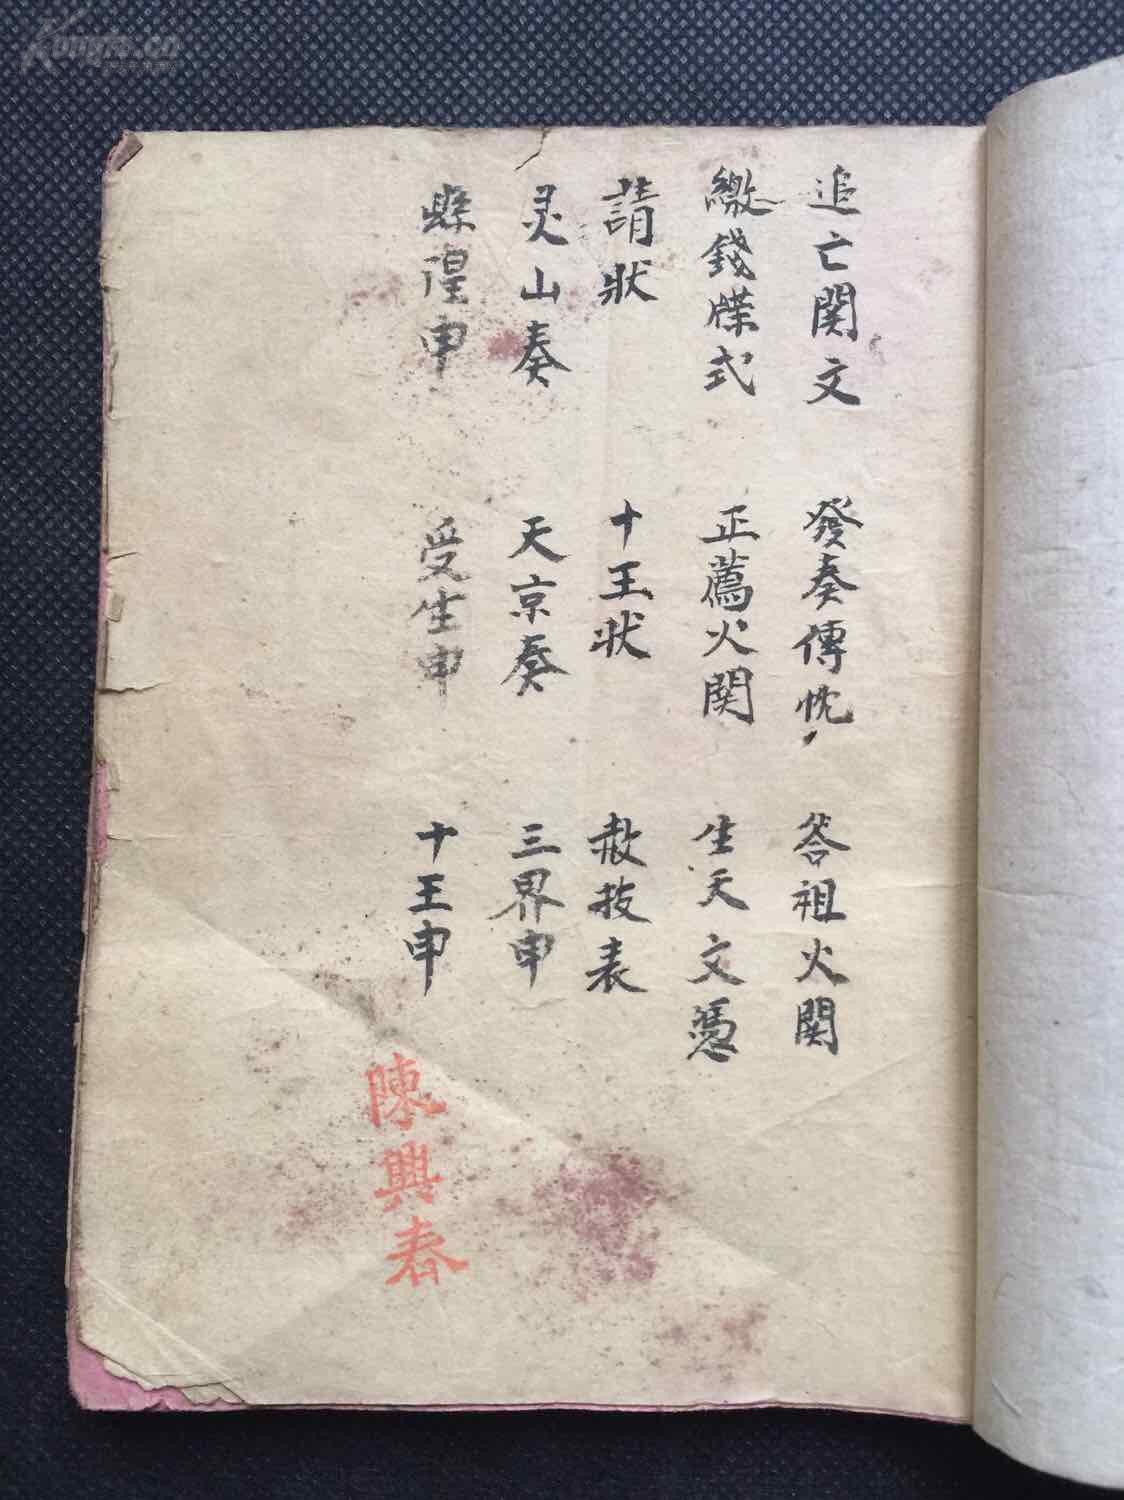 追亡関文 發奏傳忱 答祖火関
繳錢牒式 正薦火関 生天文憑
請狀 十王狀 赦技表
灵山奏 天京奏 三界申
縣隍申 受生申 十王申
陳興春
Kongfz.cn